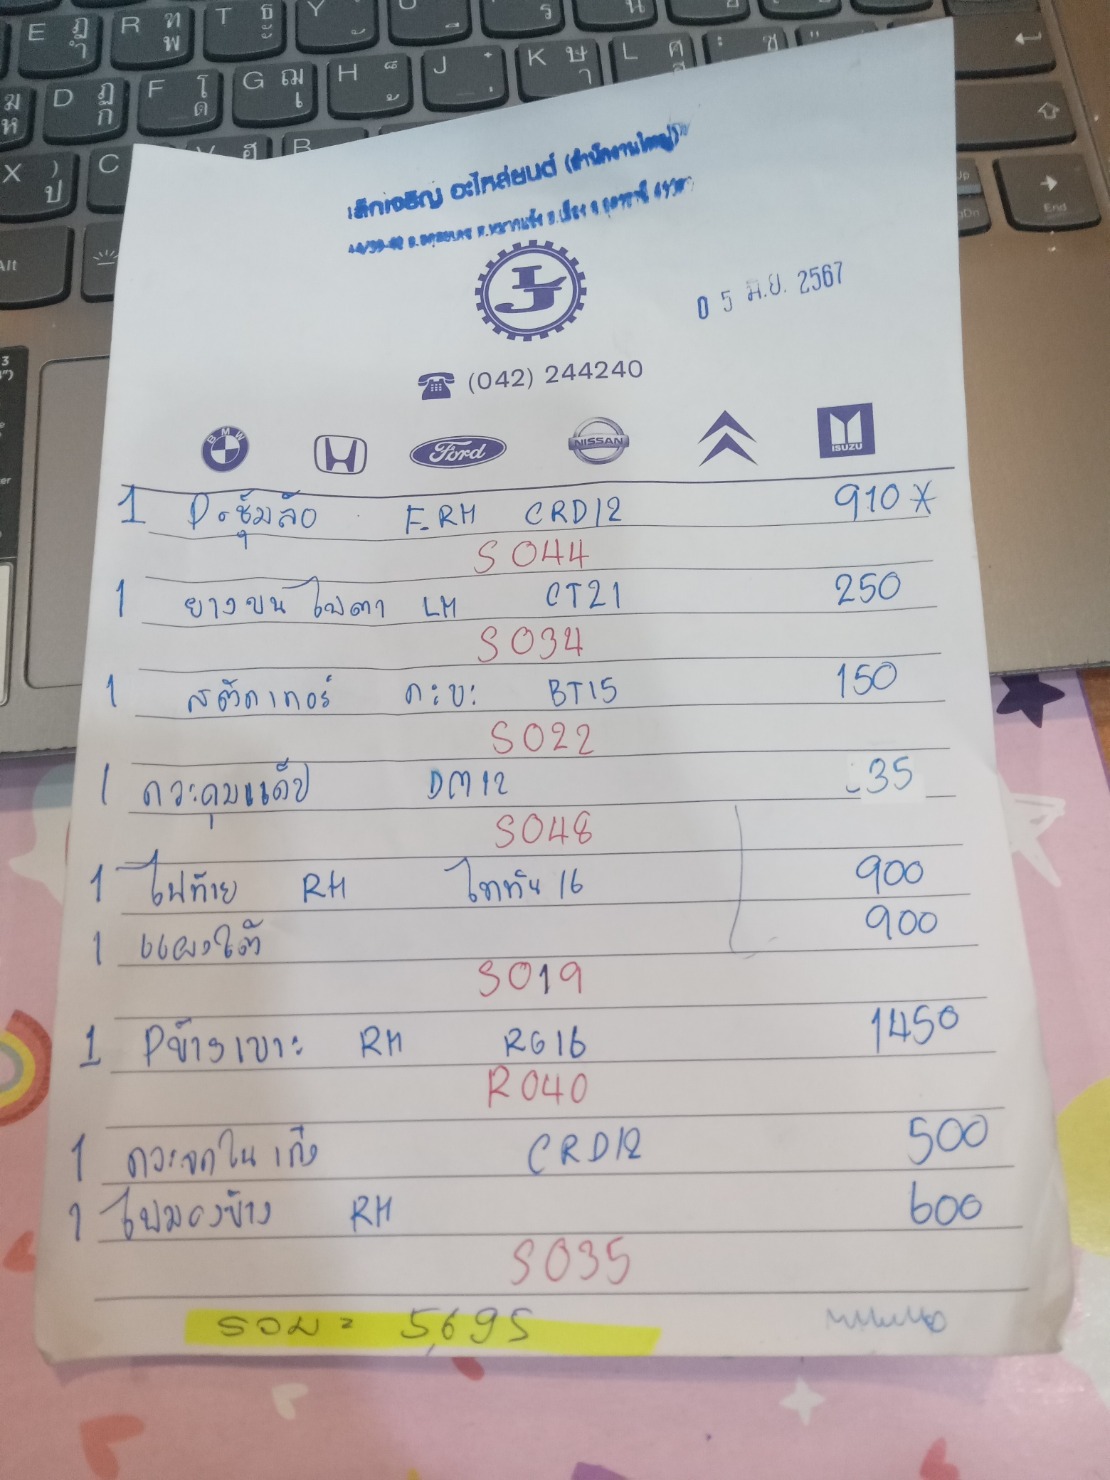 E ฏ ำ R ฑ พ T ธ ะ Y
D ฏ ก F โ ด G ฌ เ H J K ษ า L ศ ส : ซ
X ) ป C
Alt
End
เล็กเจริญ อะไหล่ยนต์ (สำนักงานใหญ่)
0 5 มิ.ย. 2567
(042) 244240
BMW Ford NISSAN ISUZU
1 P.ซุ้มล้อ F.RH CRD12 910*
S044
1 ยางขน ไฟตา LH CT21 250
S034
1 สตัดเทอร์ กะบะ BT15 150
S022
1 DM12 35
S048
1 ไฟท้าย RH ไททัน 16 900
1 แผงใต้ 900
S019
1 Pข้างเบาะ RH RG16 1450
R040
1 CRD12 500
1 ไฟมองข้าง RH 600
S035
รวม = 5,695